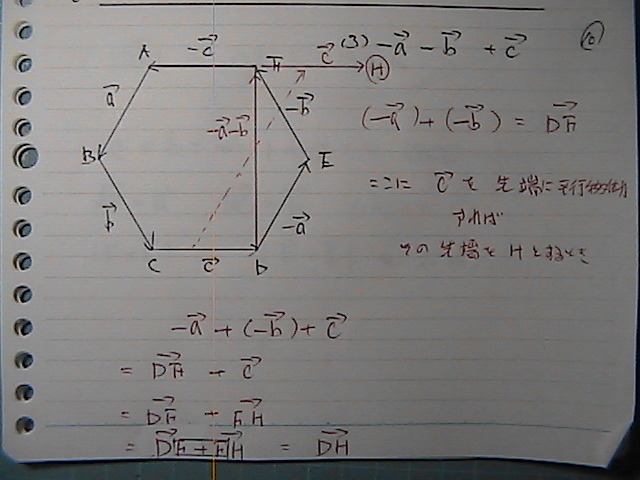 (3) -a⃗ - b⃗ + c⃗
A -c⃗ F c⃗ H
a⃗ -b⃗
-a⃗-b⃗
B E
b⃗ -a⃗
C c⃗ D
(-a⃗) + (-b⃗) = DF⃗
ここに c⃗ を 先端に平行移動
すれば
その先端を H とするとき
-a⃗ + (-b⃗) + c⃗
= DF⃗ + c⃗
= DF⃗ + FH⃗
= DF+FH⃗ = DH⃗